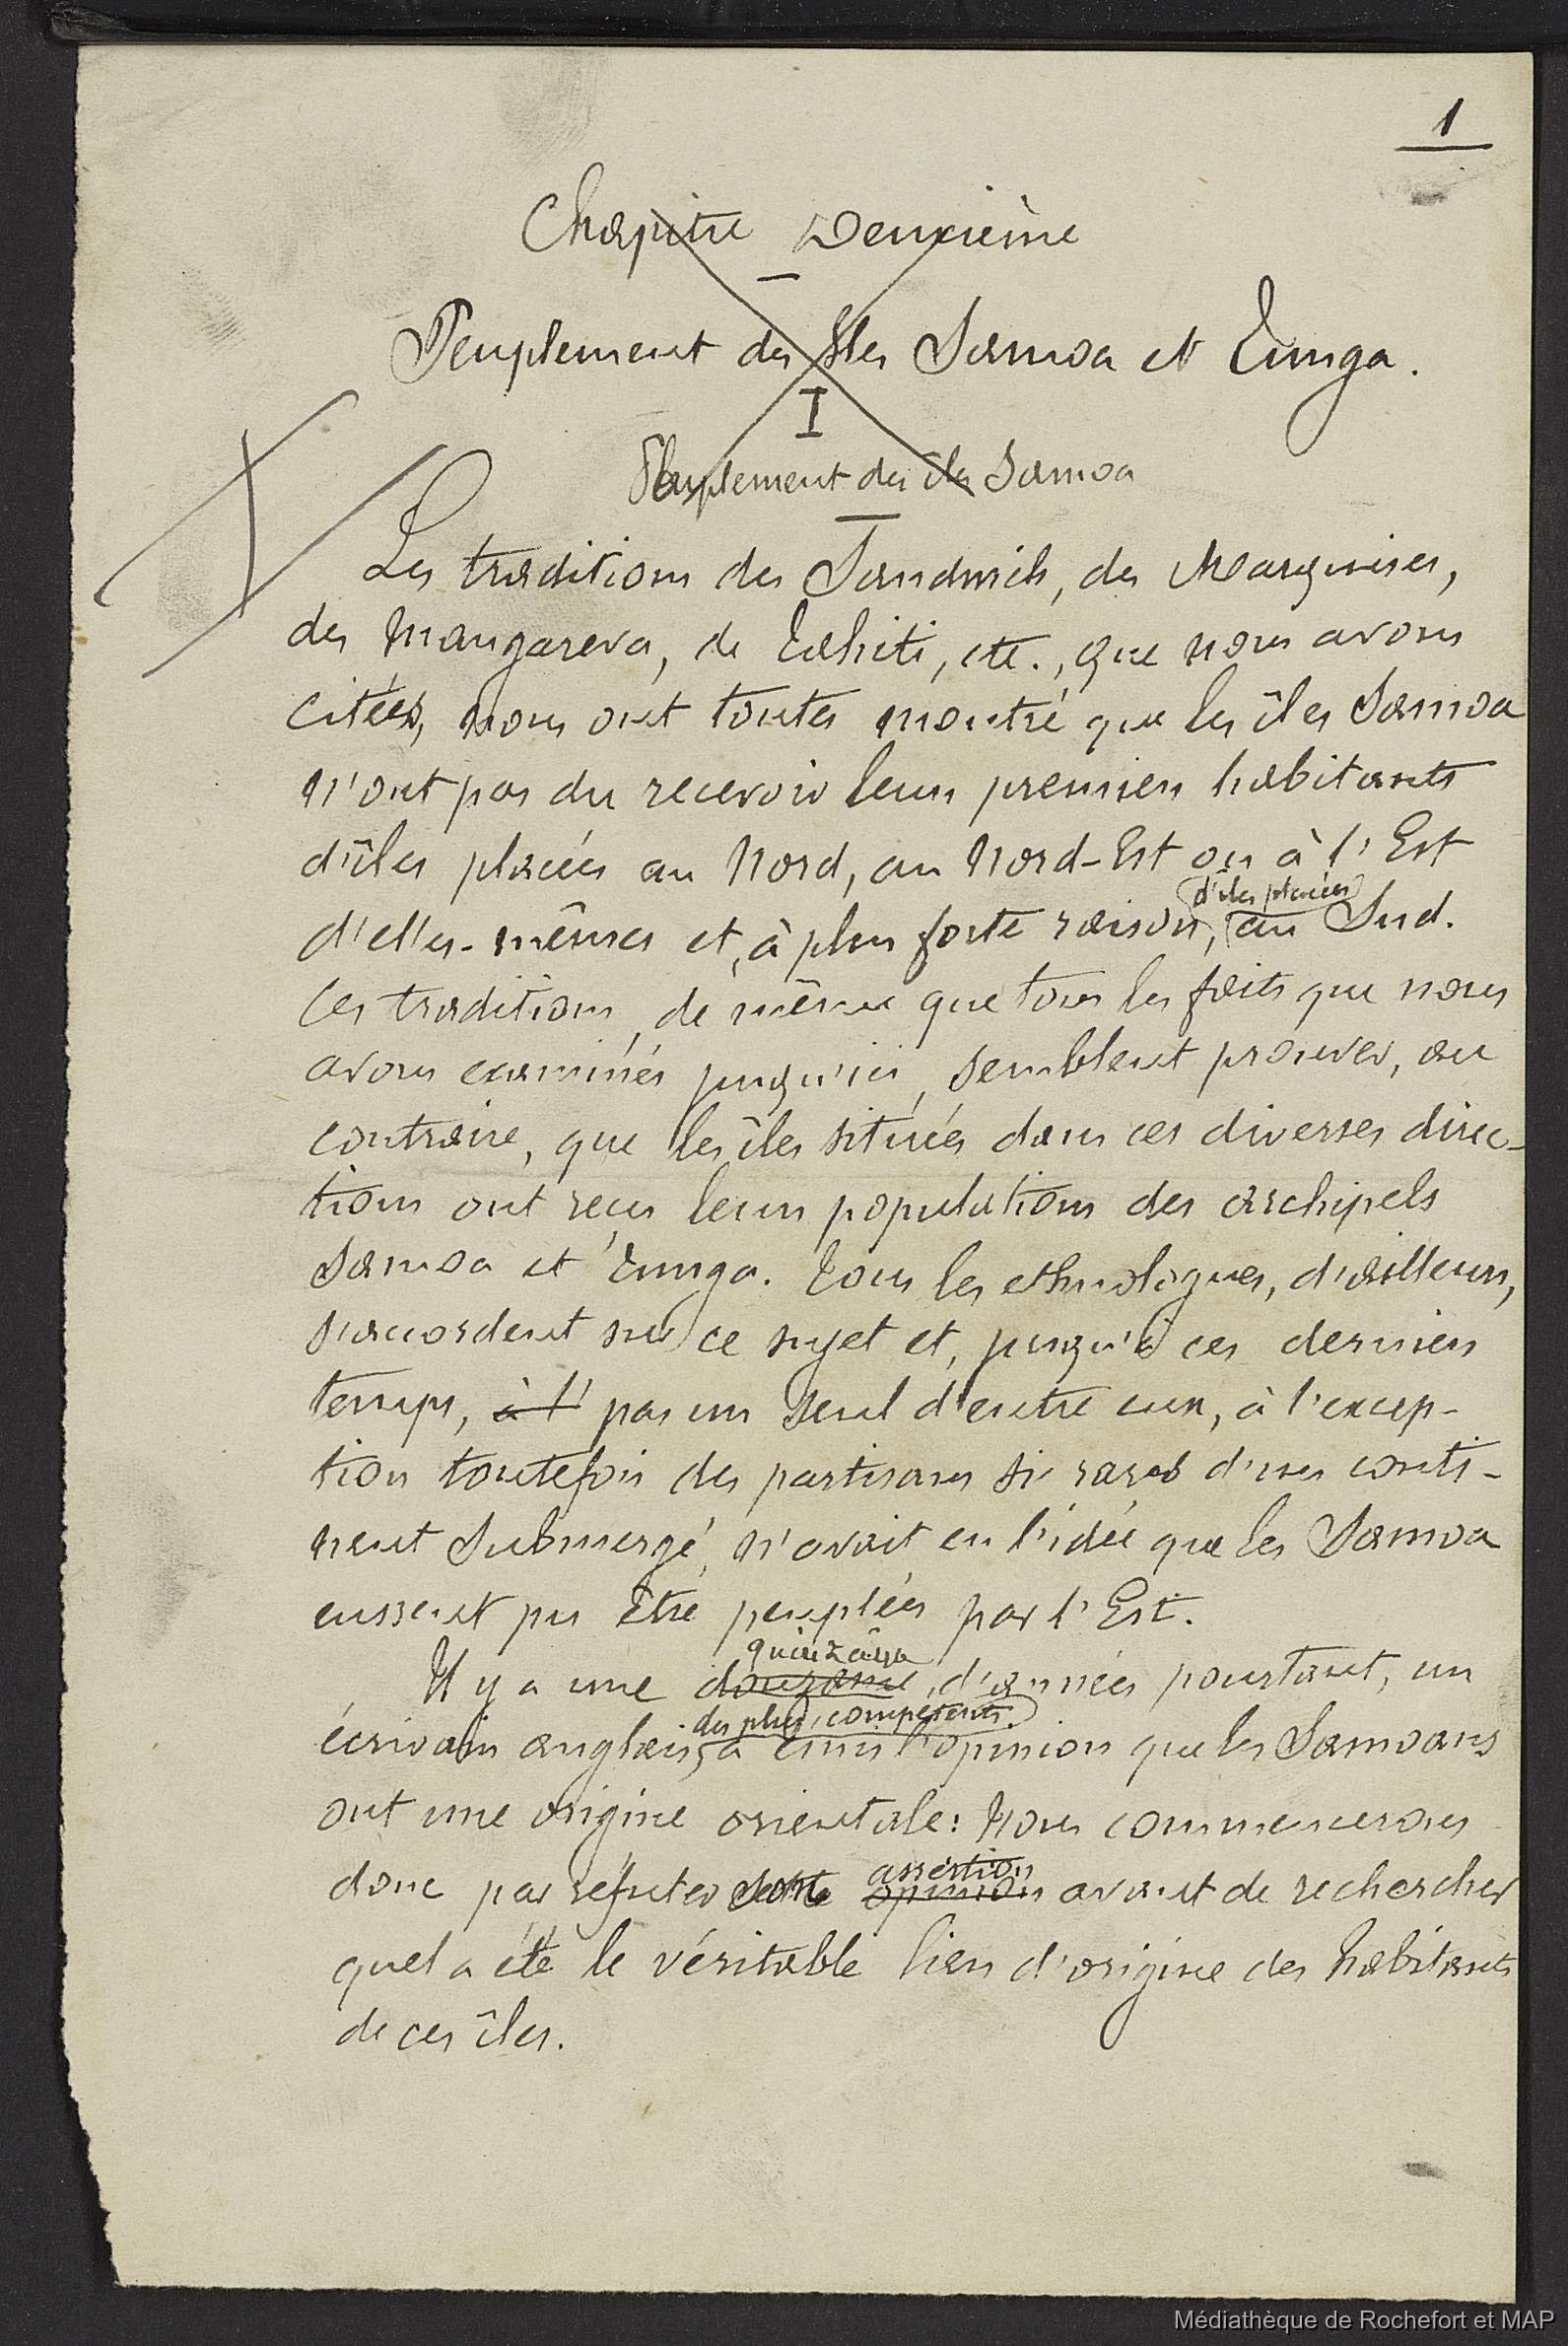 1
Chapitre Deuxième
Peuplement des Iles Samoa et Tunga.
I
Peuplement des îles Samoa
Les traditions des Sandwich, des Marquises,
des Mangareva, de Tahiti, etc., que nous avons
citées, nous ont toutes montré que les îles Samoa
n'ont pas du recevoir leurs premiers habitants
d'îles placées au Nord, au Nord-Est ou à l'Est
d'elles-mêmes et, à plus forte raison, d'îles placées au Sud.
Ces traditions, de même que tous les faits que nous
avons examinés jusqu'ici, semblent prouver, au
contraire, que les îles situées dans ces diverses direc-
tions ont reçu leurs populations des archipels
Samoa et Tunga. Tous les ethnologues, d'ailleurs,
s'accordent sur ce sujet et, jusqu'à ces derniers
temps, à l' pas un seul d'entre eux, à l'excep-
tion toutefois des partisans si rares d'un conti-
nent submergé, n'avait eu l'idée que les Samoa
eussent pu être peuplées par l'Est.
quinzaine
Il y a une douzaine d'années pourtant, un
des plus compétents
écrivain anglais, a émis l'opinion que les Samoans
ont une origine orientale: Nous commencerons
assertion
donc par réfuter cette opinion avant de rechercher
quel a été le véritable lieu d'origine des habitants
de ces îles.
Médiathèque de Rochefort et MAP